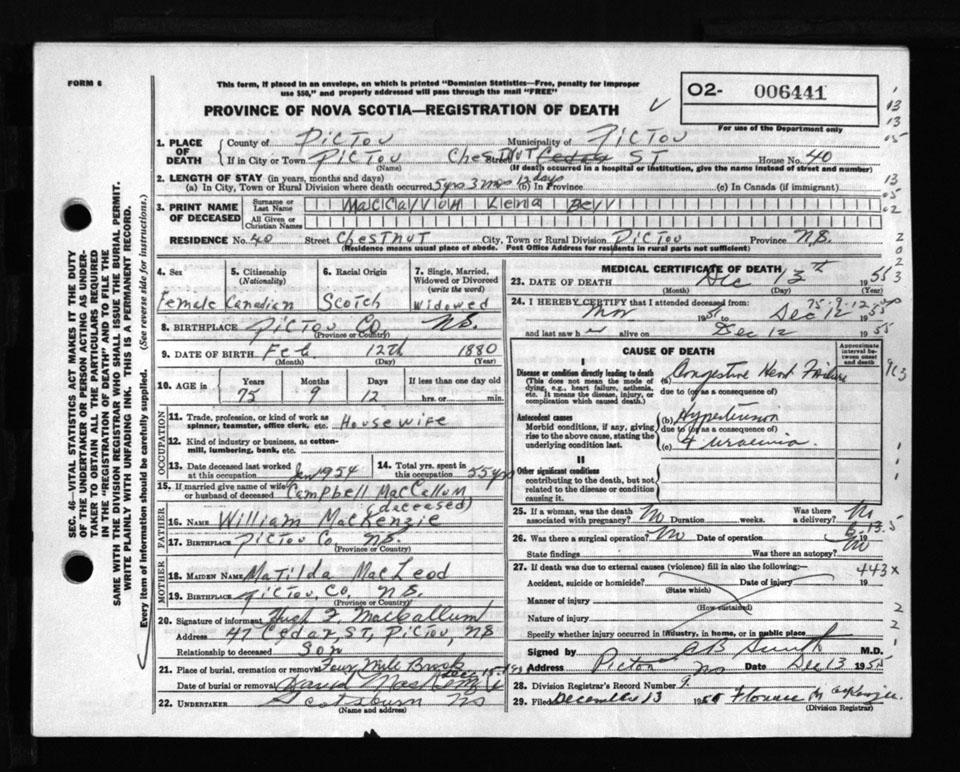 FORM 6
This form, if placed in an envelope, on which is printed "Dominion Statistics—Free, penalty for improper
use $50," and properly addressed will pass through the mail "FREE"
PROVINCE OF NOVA SCOTIA—REGISTRATION OF DEATH
02- 006441
For use of the Department only
1. PLACE OF DEATH
County of PICTOU Municipality of PICTOU
If in City or Town PICTOU (Name) Street CHESTNUT Cedar ST House No. 40
(If death occurred in a hospital or institution, give the name instead of street and number)
2. LENGTH OF STAY (in years, months and days)
(a) In City, Town or Rural Division where death occurred 5 yrs 3 mos 12 days (b) In Province (c) In Canada (if immigrant)
3. PRINT NAME OF DECEASED
Surname or Last Name MacCallum Lena Bell
All Given or Christian Names
RESIDENCE No. 40 Street Chestnut City, Town or Rural Division Pictou Province N.S.
(Residence means usual place of abode. Post Office Address for residents in rural parts not sufficient)
4. Sex Female
5. Citizenship (Nationality) Canadian
6. Racial Origin Scotch
7. Single, Married, Widowed or Divorced (write the word) Widowed
8. BIRTHPLACE Pictou Co. N.S. (Province or Country)
9. DATE OF BIRTH Feb 12th 1880
(Month) (Day) (Year)
10. AGE in Years Months Days If less than one day old
75 9 12 hrs. or min.
OCCUPATION
11. Trade, profession, or kind of work as spinner, teamster, office clerk, etc. Housewife
12. Kind of industry or business, as cotton-mill, lumbering, bank, etc.
13. Date deceased last worked at this occupation Jan 1954
14. Total yrs. spent in this occupation 55 yrs
15. If married give name of wife or husband of deceased Campbell MacCallum
(deceased)
FATHER
16. NAME William MacKenzie
17. BIRTHPLACE Pictou Co, N.S.
(Province or Country)
MOTHER
18. MAIDEN NAME Matilda MacLeod
19. BIRTHPLACE Pictou, Co, N.S.
(Province or Country)
20. Signature of informant Hugh F. MacCallum
Address 47 Cedar, ST, Pictou, NS
Relationship to deceased Son
21. Place of burial, cremation or removal Four Mile Brook
Date of burial or removal Dec. 15
22. UNDERTAKER David MacKenzie
Scotsburn NS
(Name and address)
MEDICAL CERTIFICATE OF DEATH
23. DATE OF DEATH Dec 13th 1955
(Month) (Day) (Year)
24. I HEREBY CERTIFY that I attended deceased from:
75-9-12
Nov 1951 to Dec 12 1955
and last saw h alive on Dec 12 1955
CAUSE OF DEATH
Approximate interval between onset and death
I
Disease or condition directly leading to death
(This does not mean the mode of dying, e.g., heart failure, asthenia, etc. It means the disease, injury, or complication which caused death.)
(a) Congestive Heart Failure
due to (or as a consequence of)
Antecedent causes
Morbid conditions, if any, giving rise to the above cause, stating the underlying condition last.
(b) Hypertension
due to (or as a consequence of)
(c) + uraemia.
II
Other significant conditions
contributing to the death, but not related to the disease or condition causing it.
25. If a woman, was the death associated with pregnancy? No Duration weeks. Was there a delivery? No
26. Was there a surgical operation? No Date of operation 19
State findings Was there an autopsy? No
27. If death was due to external causes (violence) fill in also the following:— 443X
Accident, suicide or homicide? Date of injury 19
(State which)
Manner of injury
(How sustained)
Nature of injury
Specify whether injury occurred in industry, in home, or in public place
Signed by CB Smith M.D.
Address Pictou NS Date Dec 13 1955
28. Division Registrar's Record Number 9.
29. Filed December 13 1955 Florence McKenzie
(Division Registrar)
SEC. 46—VITAL STATISTICS ACT MAKES IT THE DUTY
OF THE UNDERTAKER OR PERSON ACTING AS UNDER-
TAKER TO OBTAIN ALL THE PARTICULARS REQUIRED
IN THE "REGISTRATION OF DEATH" AND TO FILE THE
SAME WITH THE DIVISION REGISTRAR WHO SHALL ISSUE THE BURIAL PERMIT.
WRITE PLAINLY WITH UNFADING INK. THIS IS A PERMANENT RECORD.
Every item of information should be carefully supplied. (See reverse side for instructions.)